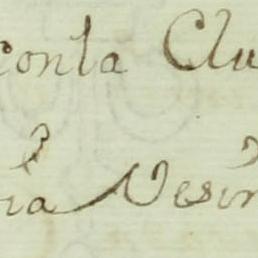 conla Clu
ia Vesin